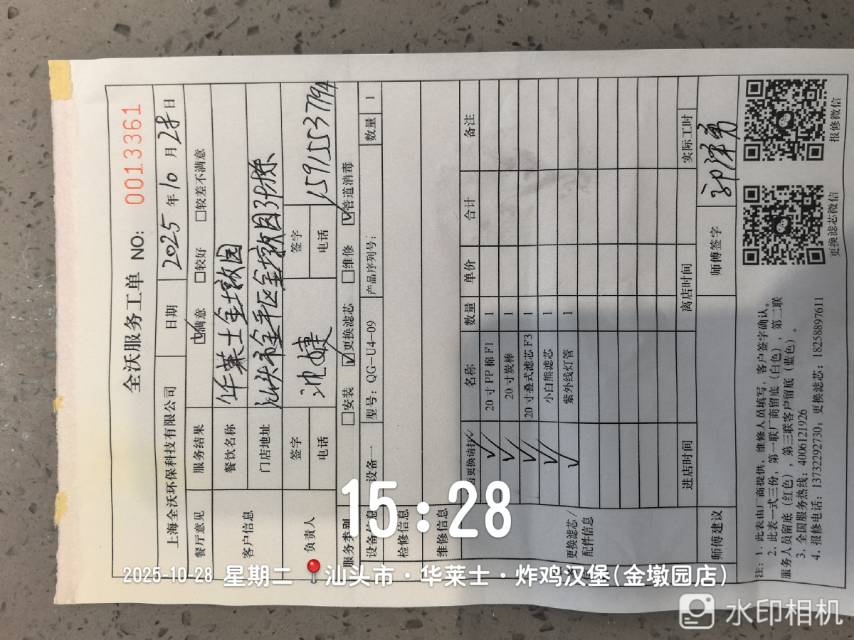 全沃服务工单 NO: 0013361
上海全沃环保科技有限公司 日期 2025 年 10 月 28 日
餐厅意见 服务结果 ☑满意 □较好 □较差不满意
客户信息 餐饮名称 华莱士金墩园
门店地址 汕头市金平区金墩园3栋
负责人 签字 沈婕 签字
电话 电话 15915537794
服务类别 □安装 ☑更换滤芯 □维修 ☑管道消毒
设备信息 设备一 型号: QG-U4-09 产品序列号: 数量 1
检修信息
维修信息
更换滤芯/配件信息 名称 数量 单价 合计 备注
✓ 20寸PP棉F1 1
✓ 20寸炭棒 1
✓ 20寸叠式滤芯F3 1
✓ 小白熊滤芯 1
✓ 紫外线灯管 1
进店时间 离店时间 实际工时
师傅建议 师傅签字
注: 1. 此表由厂商提供, 维修人员填写, 客户签字确认。
2. 此表一式三份, 第一联厂商留底(白色), 第二联
服务人员留底(红色), 第三联客户留底(蓝色)。
3. 全国服务热线: 4006121926
4. 报修电话: 13732292730, 更换滤芯: 18258897611
更换滤芯微信 报修微信
15:28
2025-10-28 星期二 汕头市·华莱士·炸鸡汉堡(金墩园店)
水印相机